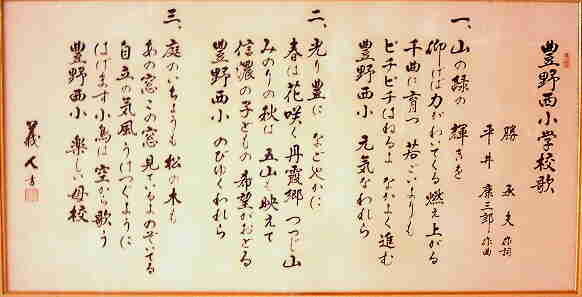 豊野西小学校歌
勝 承夫 作詞
平井 康三郎 作曲
一、山の緑の 輝きを
仰げば力がわいてくる 燃え上がる
千曲に育つ 若ごいよりも
ピチピチはねるよ なかよく進む
豊野西小 元気なわれら
二、光り豊に なごやかに
春は花咲く 丹霞郷 つつじ山
みのりの秋は 五山も映えて
信濃の子どもの 希望がおどる
豊野西小 のびゆくわれら
三、庭のいちょうも 松の木も
あの窓この窓 見ているよ のぞいてる
自立の気風 うけつぐように
はげます小鳥は 空から歌う
豊野西小 楽しい母校
義人書